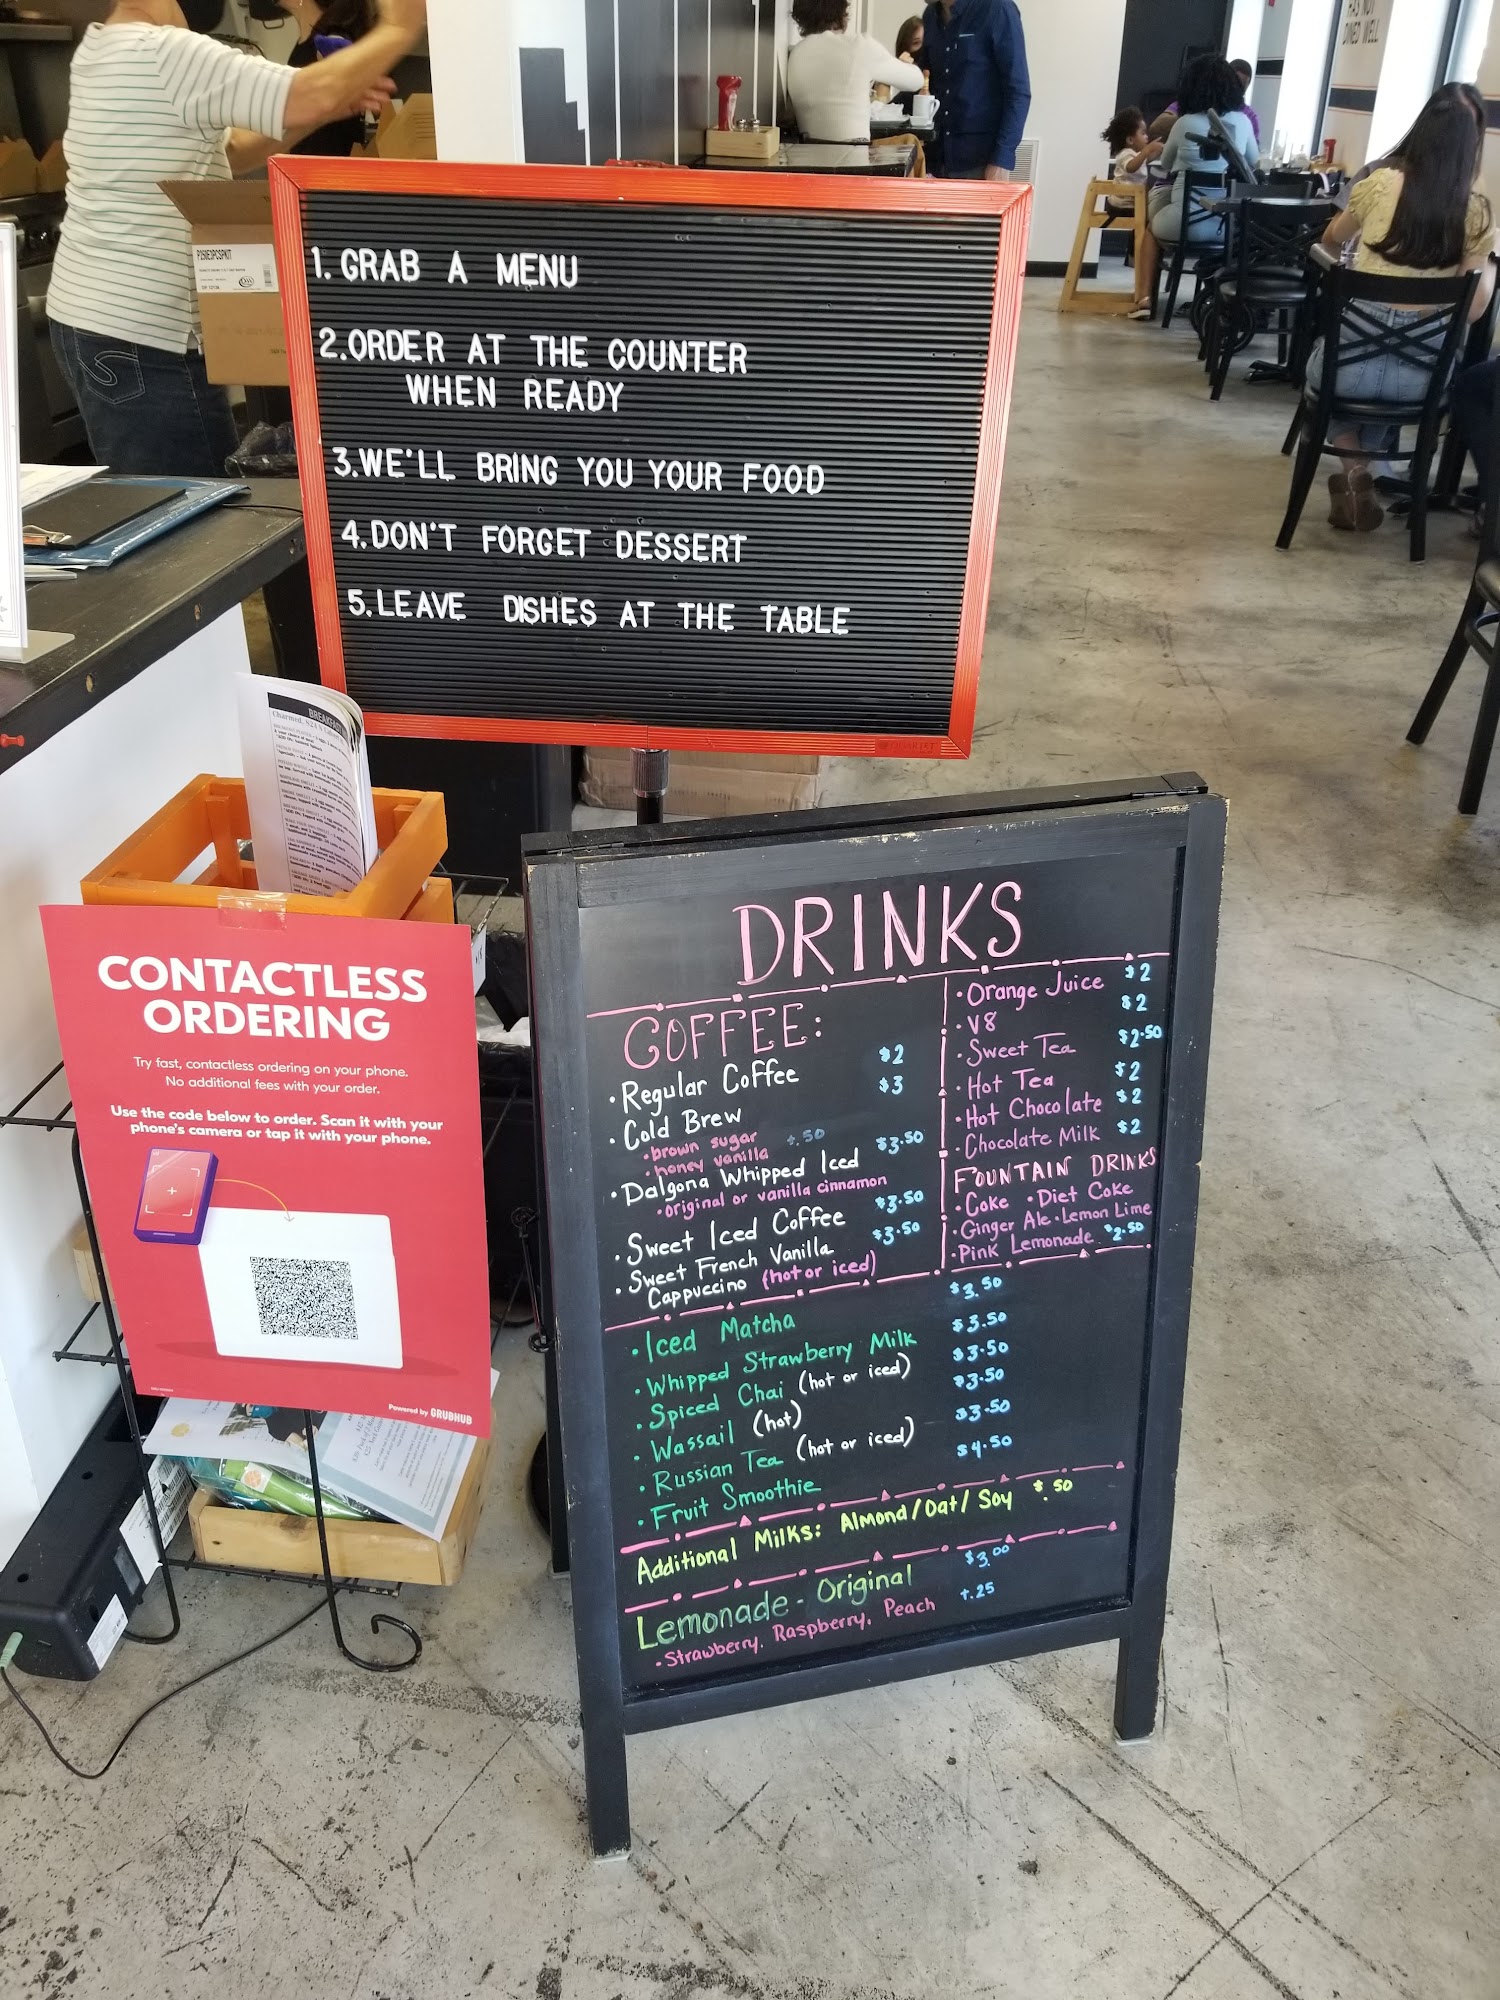 HAS NOT
DINED WELL
P250E3PCSPKIT
1. GRAB A MENU
2. ORDER AT THE COUNTER
WHEN READY
3. WE'LL BRING YOU YOUR FOOD
4. DON'T FORGET DESSERT
5. LEAVE DISHES AT THE TABLE
BREAKFAST
CONTACTLESS
ORDERING
Try fast, contactless ordering on your phone.
No additional fees with your order.
Use the code below to order. Scan it with your
phone's camera or tap it with your phone.
Powered by GRUBHUB
DRINKS
COFFEE:
• Regular Coffee $2
• Cold Brew $3
• brown sugar +.50
• honey vanilla
• Dalgona Whipped Iced $3.50
• original or vanilla cinnamon
• Sweet Iced Coffee $3.50
• Sweet French Vanilla $3.50
Cappuccino (hot or iced)
• Orange Juice $2
• V8 $2
• Sweet Tea $2.50
• Hot Tea $2
• Hot Chocolate $2
• Chocolate Milk $2
FOUNTAIN DRINKS
• Coke • Diet Coke
• Ginger Ale • Lemon Lime
• Pink Lemonade $2.50
• Iced Matcha $3.50
• Whipped Strawberry Milk $3.50
• Spiced Chai (hot or iced) $3.50
• Wassail (hot) $3.50
• Russian Tea (hot or iced) $3.50
• Fruit Smoothie $4.50
Additional Milks: Almond/Oat/Soy $.50
Lemonade - Original $3.00
• Strawberry, Raspberry, Peach +.25